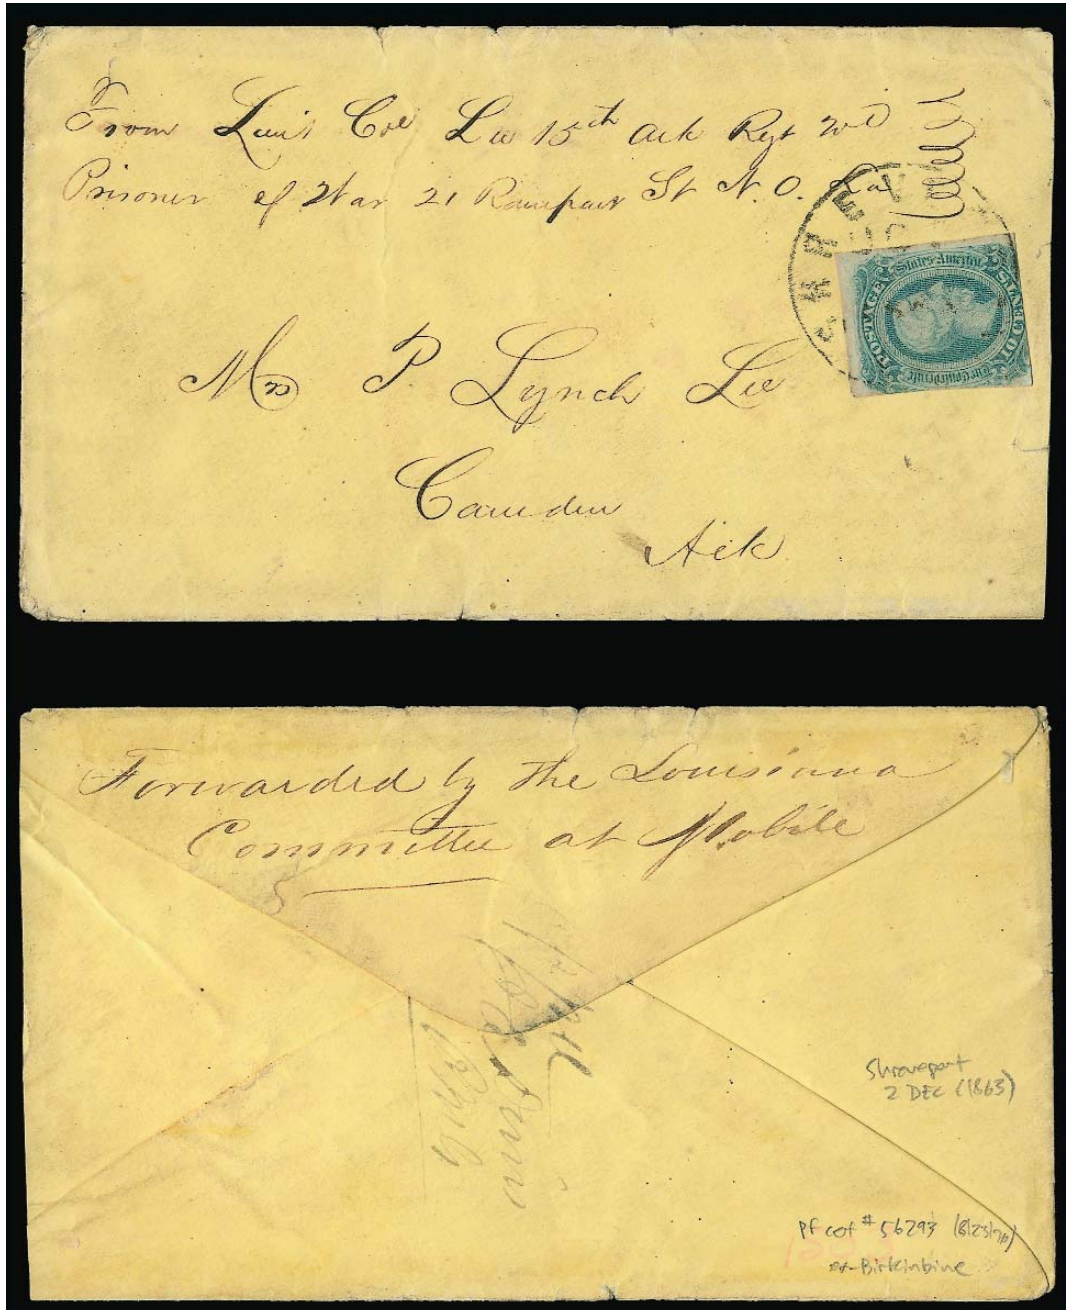 From Lieut Col Lee 15th Ark Regt Vol
Prisoner of War 21 Rampart St N.O. La
SHREVE
POSTAGE
The Confederate
States America
Mrs P Lynch Lee
Camden
Ark
Forwarded by the Louisiana
Committee at Mobile
Shreveport
2 DEC (1863)
PF cert # 56293 (8/23/76)
ex-Birkinbine